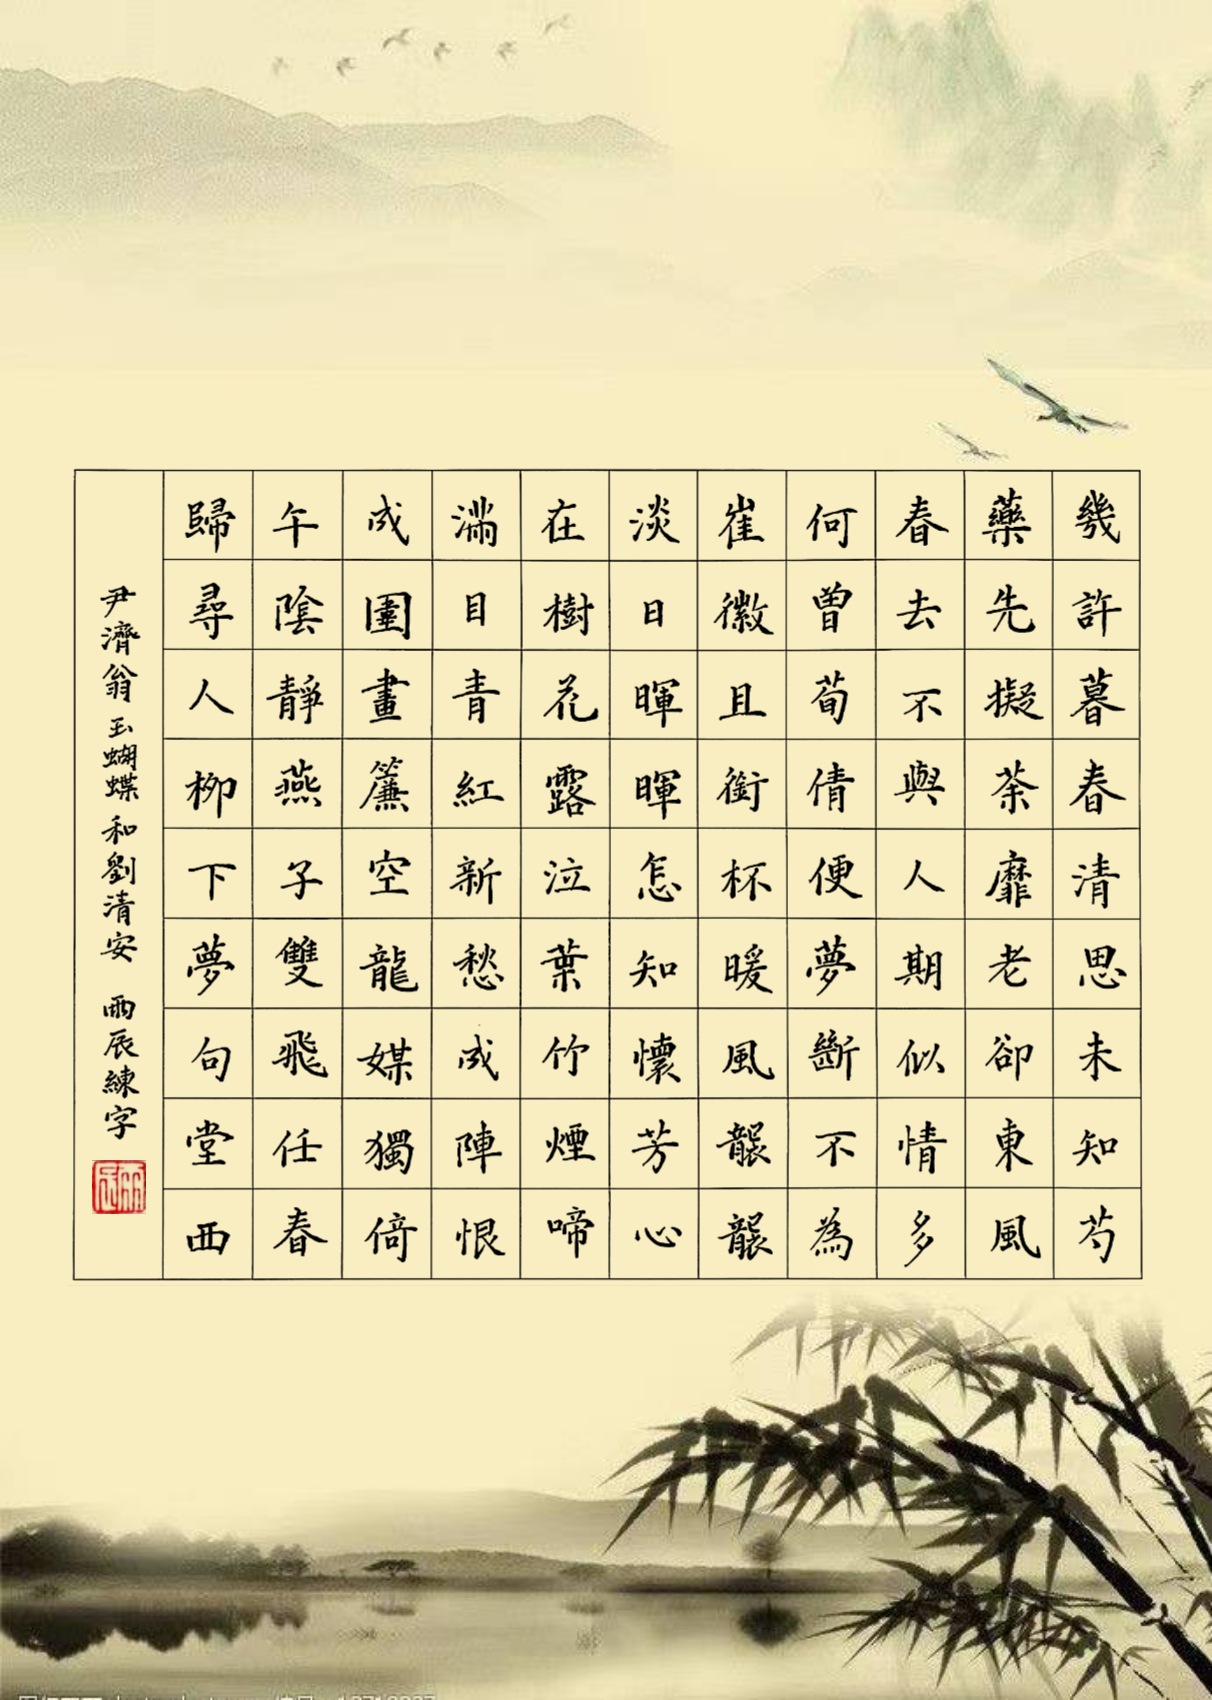 幾許暮春清思未知芍
藥先擬荼靡老卻東風
春去不與人期似情多
何曾荀倩便夢斷不為
崔徽且銜杯暖風襲襲
淡日暉暉怎知懷芳心
在樹花露泣葉竹煙啼
滿目青紅新愁成陣恨
成圍畫簾空龍媒獨倚
午陰靜燕子雙飛任春
歸尋人柳下夢句堂西
尹濟翁玉蝴蝶和劉清安 丙辰練字